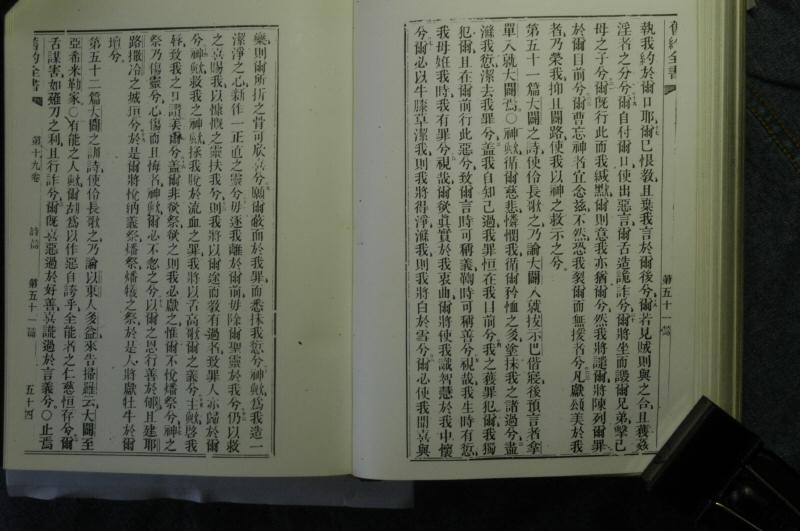 舊約全書
第五十一篇
執我約於爾口耶爾已恨敎且棄我言於爾後兮爾若見賊則與之合且獲姦
淫者之分兮爾自付爾口使出惡言爾舌造詭詐兮爾將坐而譭爾兄弟擊己
母之子兮爾旣行此而我緘默爾則意我亦猶爾兮然我將譴爾將陳列爾罪
於爾目前兮爾曹忘神者宜念茲不然恐我裂爾而無援者兮凡獻頌美於我
者乃榮我抑且闢路使我以神之救示之兮
第五十一篇大闢之詩使伶長歌之乃論大闢入就拔示巴偕寢後預言者拿
單入就大闢焉○神歟循爾慈悲憐憫我循爾矜恤之多塗抹我之諸過兮盡
滌我愆潔去我罪兮蓋我自知己過我罪恒在我目前兮我之獲罪犯爾我獨
犯爾且在爾前行此惡兮致爾言時可稱義鞫時可稱善兮視哉我生時有愆
我母妊我時我有罪兮視哉爾欲眞實於我衷曲爾將使我識智慧於我中懷
兮爾必以牛膝草潔我則我將得淨滌我則我將白於雪兮爾必使我聞喜與
樂則爾所折之骨可欣喜兮願爾蔽面於我罪而悉抹我愆兮神歟爲我造一
潔淨之心新作一正直之靈兮毋逐我離於爾前毋除爾聖靈於我兮仍以救
之喜賜我以慷慨之靈扶我兮則我將以爾途而敎有過者致罪人亦歸於爾
兮神歟救我之神歟拯我脫於流血之罪我將以舌高歌爾之義兮主歟啓我
脣致我之口讚美爾兮蓋爾非欲祭欲之則我必獻之惟爾不悅燔祭兮神之
祭乃傷靈兮心傷而且悔者神歟爾必不忽之兮以爾之恩行善於郇且建耶
路撒冷之城垣兮於是爾將悅納義祭燔祭燔犧之祭於是人將獻牡牛於爾
壇兮
第五十二篇大闢之訓詩使伶長歌之乃論以東人多益來告掃羅云大闢至
亞希米勒家○有能之人歟爾胡爲以作惡自誇乎全能者之仁慈恒存兮爾
舌謀害如薙刀之利且行詐兮爾旣喜惡過於好善喜謊過於言義兮○止焉
舊約全書
第十九卷
詩篇
第五十二篇
五十四